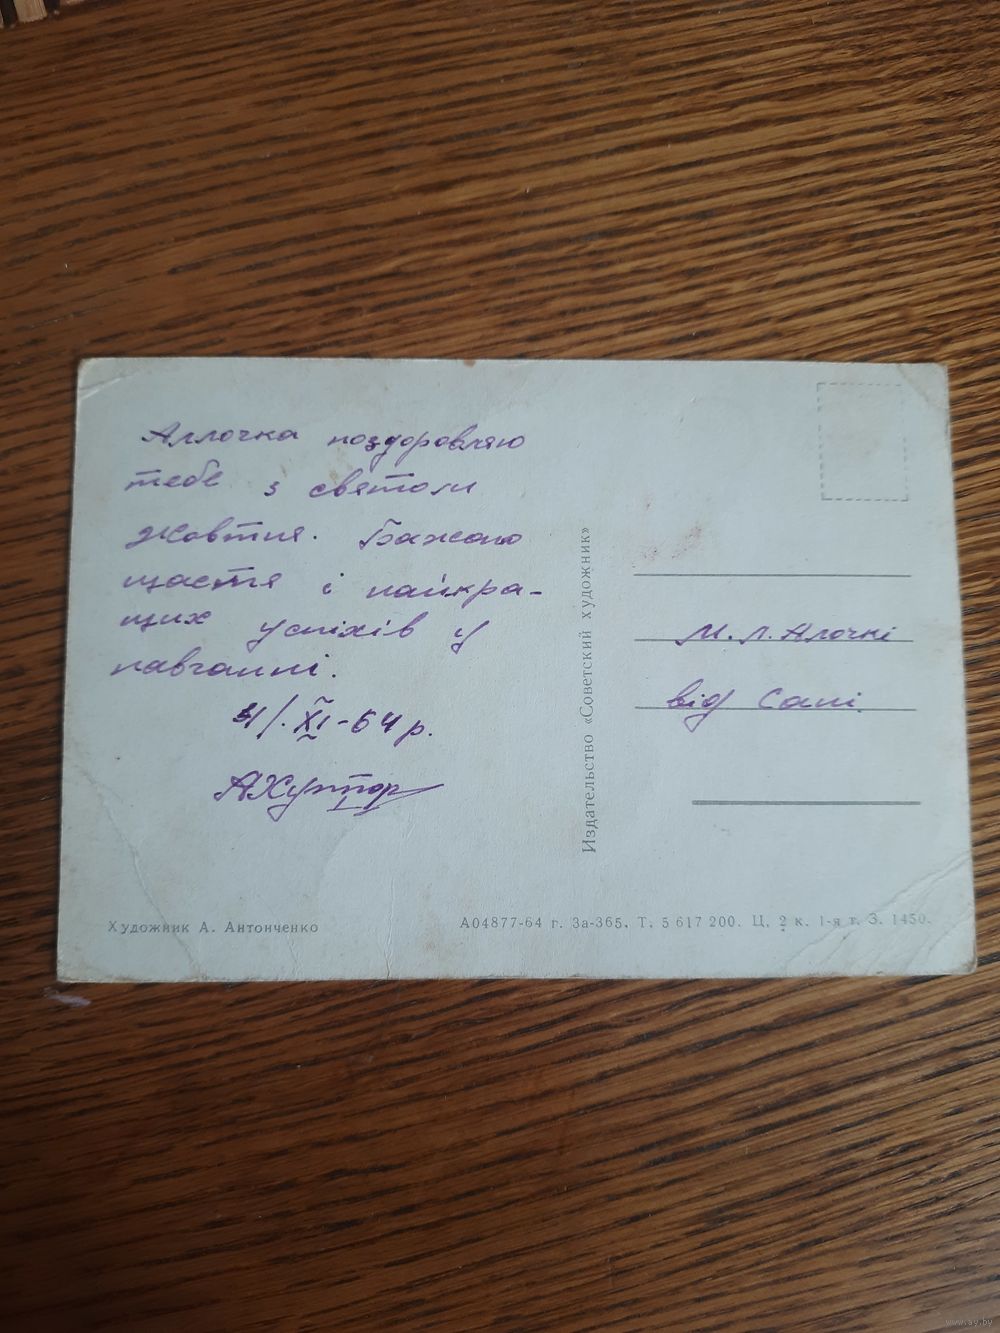 Аллочка поздоровляю
тебе з святом
Жовтня. Бажаю
щастя і найкра-
щих успіхів у
навчанні.
4/.XI-64 р.
АХуттор
Художник А. Антонченко
Издательство «Советский художник»
М. Л. Алочкі
від Сані.
А04877-64 г. За-365. Т. 5 617 200. Ц. 2 к. 1-я т. З. 1450.
www.ay.by